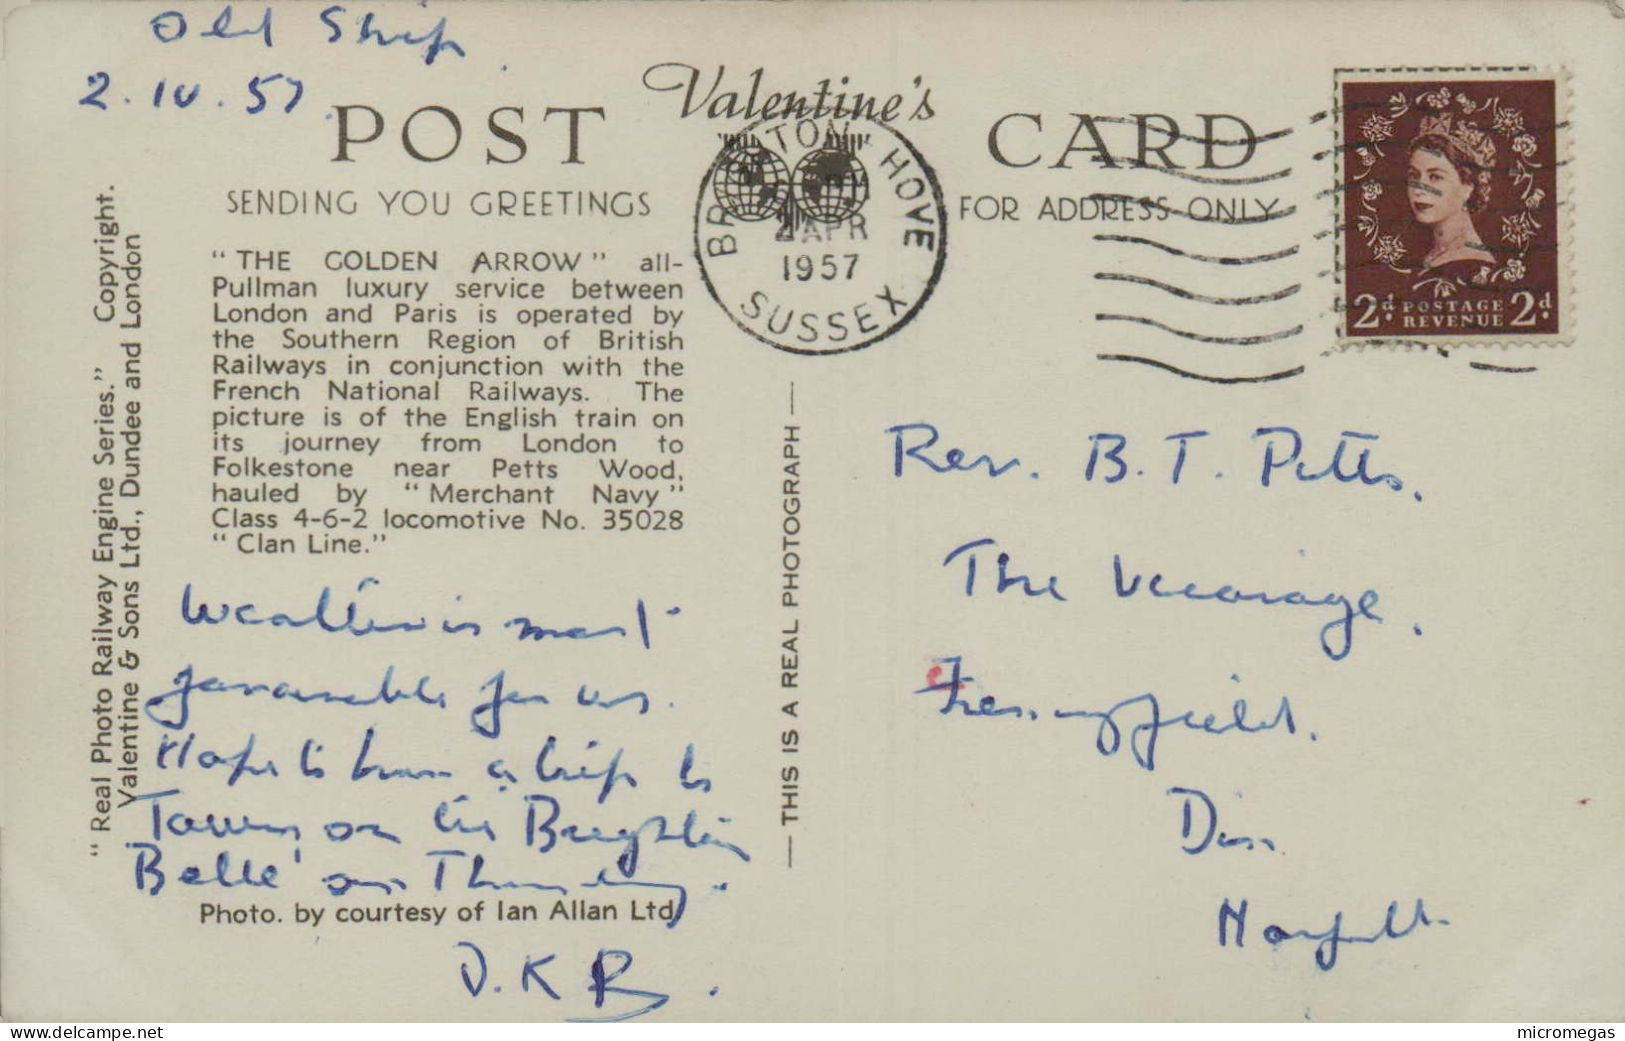 Old Ship
2.IV.57
Valentine's
POST CARD
SENDING YOU GREETINGS
FOR ADDRESS ONLY
BRIGHTON HOVE
2 APR
1957
SUSSEX
2d. POSTAGE REVENUE 2d.
"THE GOLDEN ARROW" all-
Pullman luxury service between
London and Paris is operated by
the Southern Region of British
Railways in conjunction with the
French National Railways. The
picture is of the English train on
its journey from London to
Folkestone near Petts Wood,
hauled by "Merchant Navy"
Class 4-6-2 locomotive No. 35028
"Clan Line."
Weather is most
favourable for us.
Hope to have a trip to
Town on the Brighton
Belle' on Thursday.
Photo. by courtesy of Ian Allan Ltd
D.K.R.
"Real Photo Railway Engine Series." Copyright.
Valentine & Sons Ltd., Dundee and London
— THIS IS A REAL PHOTOGRAPH —
Rev. B. T. Pitts.
The Vicarage.
Fressingfield.
Diss
Norfolk.
delcampe.net
micromegas